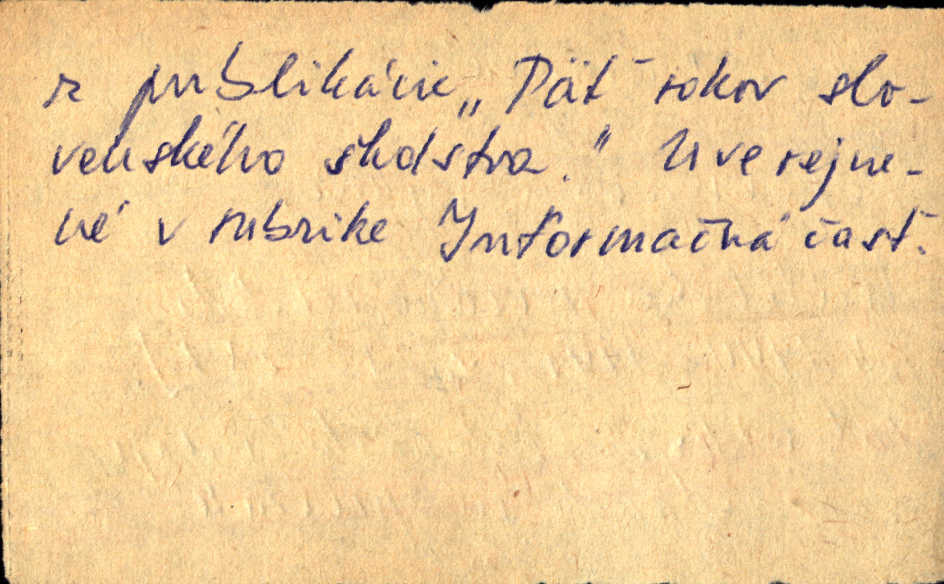 z publikácie „Päť rokov slo-
venského školstva." Uverejne-
né v rubrike Informačná časť.